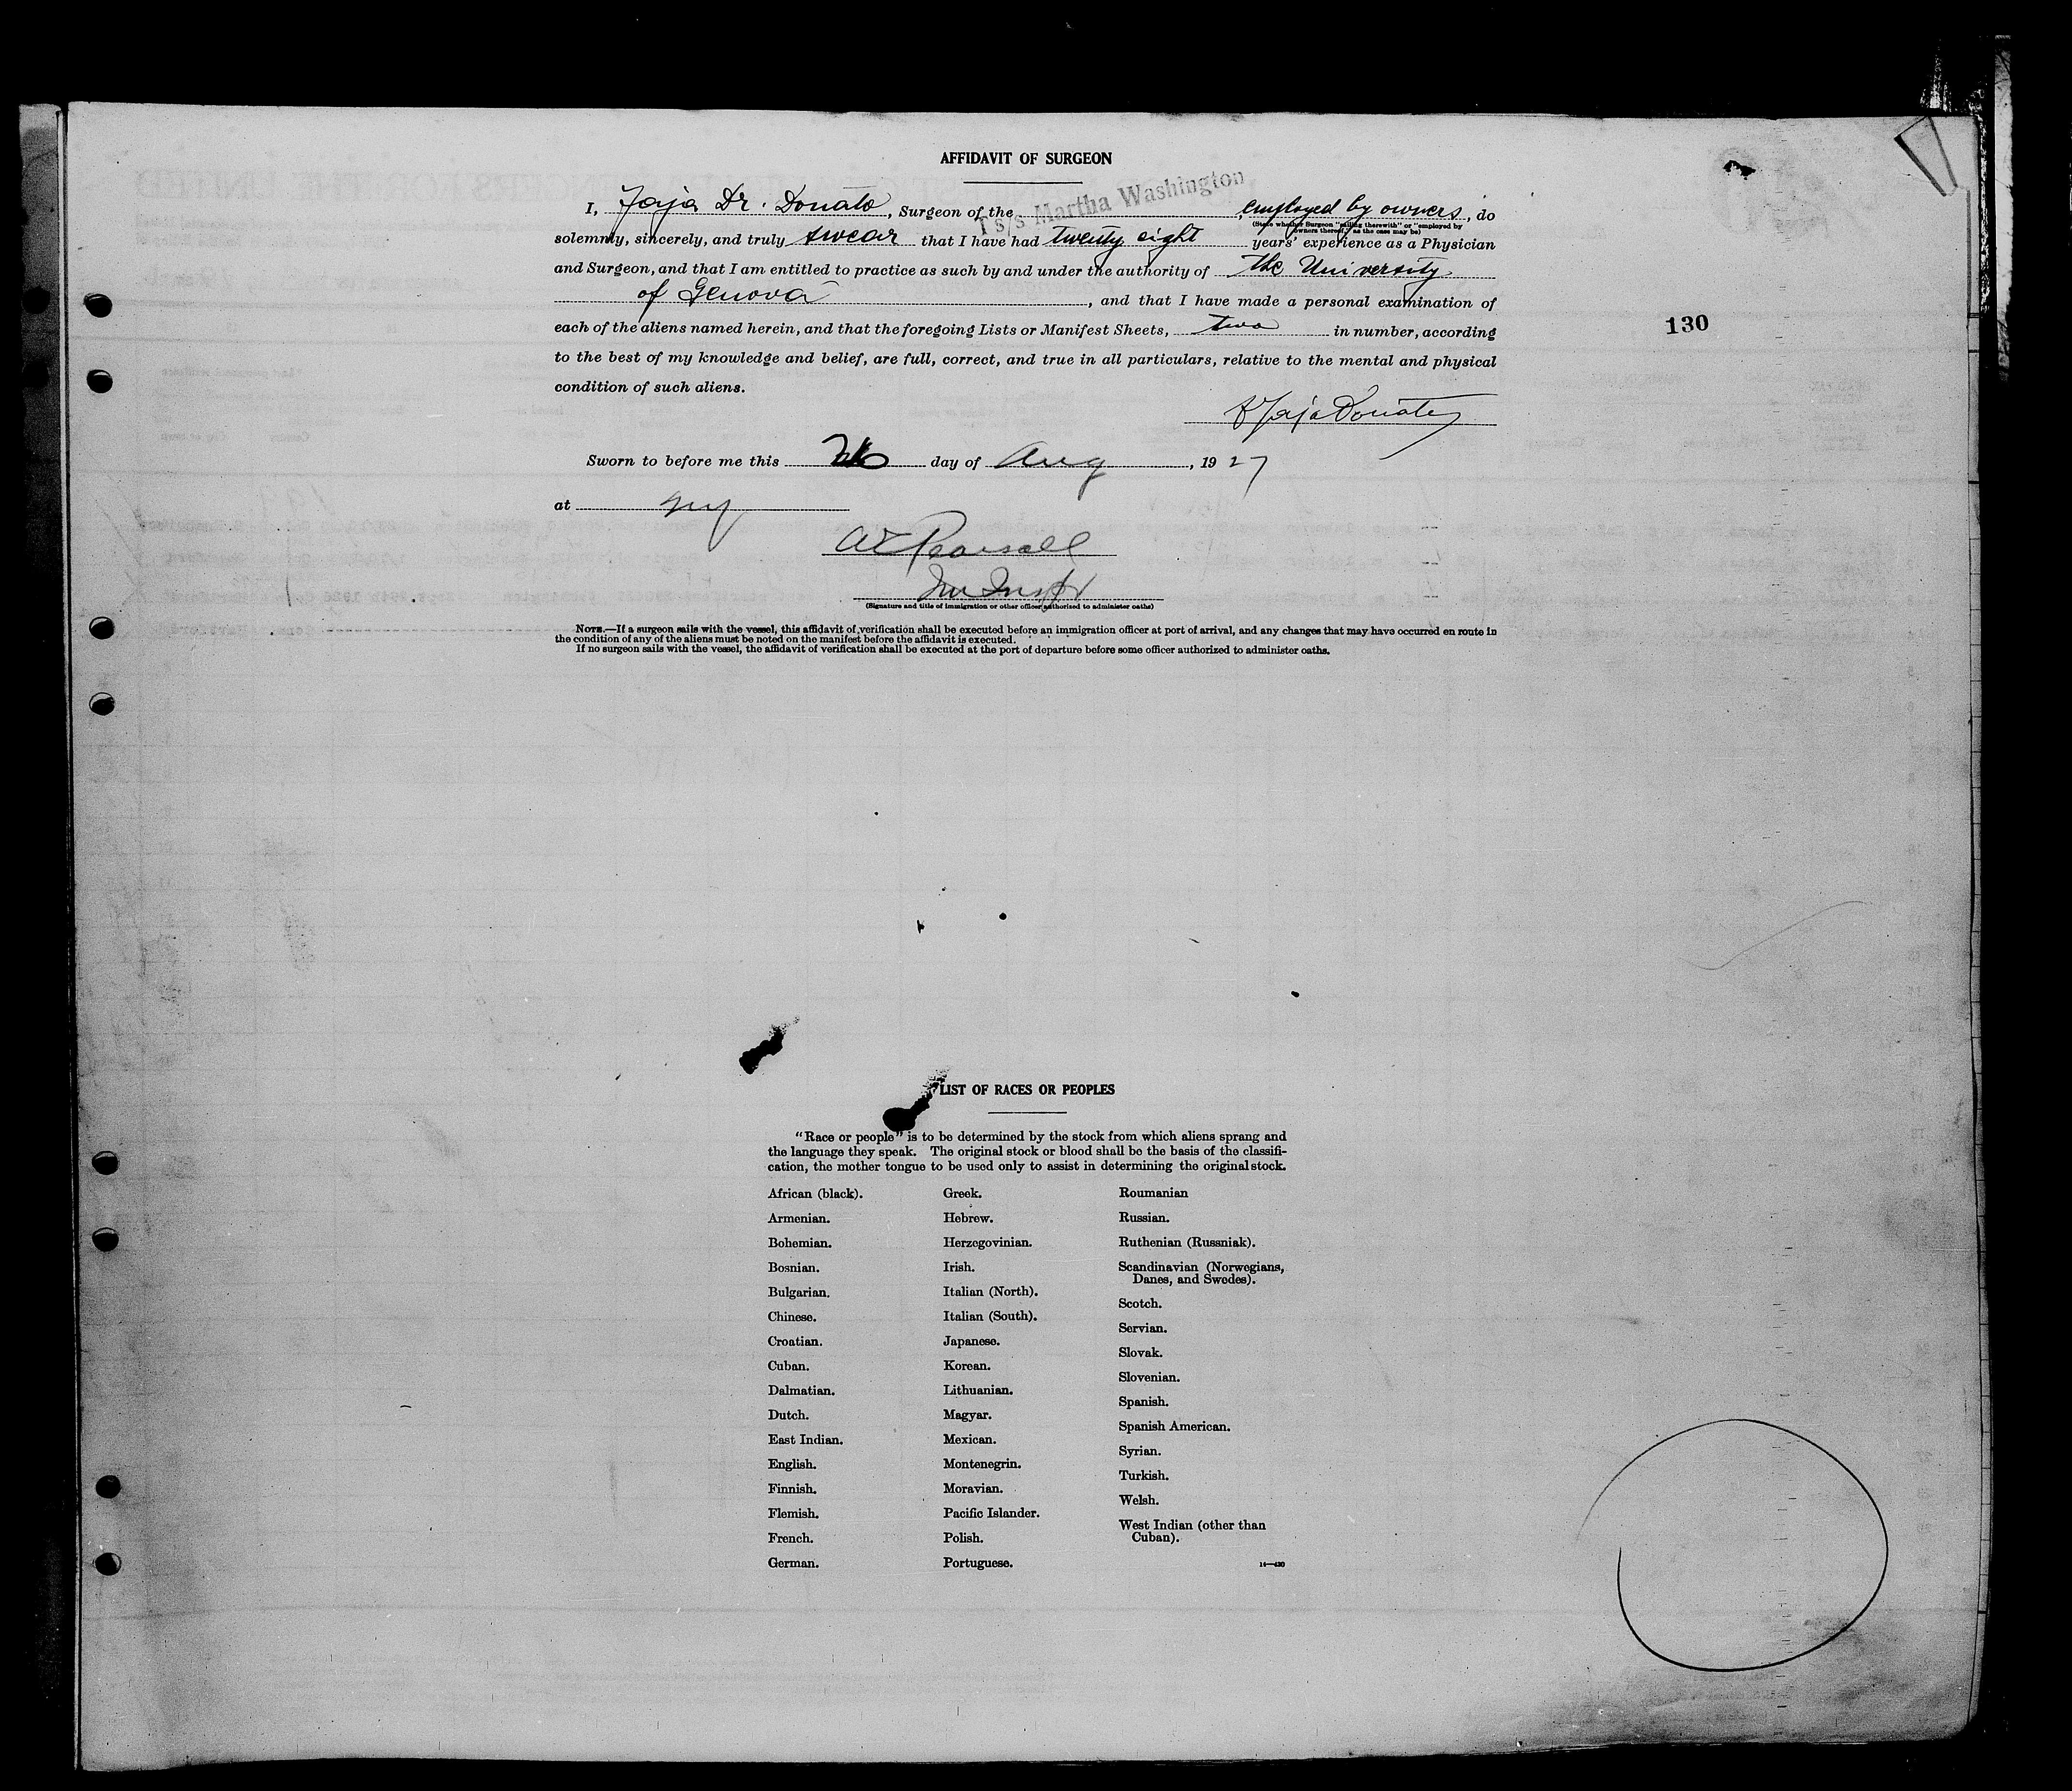 AFFIDAVIT OF SURGEON
I, Jaja Dr. Donato, Surgeon of the T s/s Martha Washington, employed by owners, do
(State whether Surgeon "sailing therewith" or "employed by owners thereof," as the case may be)
solemnly, sincerely, and truly swear that I have had twenty eight years' experience as a Physician
and Surgeon, and that I am entitled to practice as such by and under the authority of the University
of Genova, and that I have made a personal examination of
each of the aliens named herein, and that the foregoing Lists or Manifest Sheets, two in number, according
130
to the best of my knowledge and belief, are full, correct, and true in all particulars, relative to the mental and physical
condition of such aliens.
Jaja Donato
Sworn to before me this 26 day of Aug, 1927
at NY
A E Pearsall
Imm Inspr
(Signature and title of immigration or other officer authorized to administer oaths)
NOTE.—If a surgeon sails with the vessel, this affidavit of verification shall be executed before an immigration officer at port of arrival, and any changes that may have occurred en route in
the condition of any of the aliens must be noted on the manifest before the affidavit is executed.
If no surgeon sails with the vessel, the affidavit of verification shall be executed at the port of departure before some officer authorized to administer oaths.
LIST OF RACES OR PEOPLES
"Race or people" is to be determined by the stock from which aliens sprang and
the language they speak. The original stock or blood shall be the basis of the classifi-
cation, the mother tongue to be used only to assist in determining the original stock.
African (black).
Armenian.
Bohemian.
Bosnian.
Bulgarian.
Chinese.
Croatian.
Cuban.
Dalmatian.
Dutch.
East Indian.
English.
Finnish.
Flemish.
French.
German.
Greek.
Hebrew.
Herzegovinian.
Irish.
Italian (North).
Italian (South).
Japanese.
Korean.
Lithuanian.
Magyar.
Mexican.
Montenegrin.
Moravian.
Pacific Islander.
Polish.
Portuguese.
Roumanian
Russian.
Ruthenian (Russniak).
Scandinavian (Norwegians,
Danes, and Swedes).
Scotch.
Servian.
Slovak.
Slovenian.
Spanish.
Spanish American.
Syrian.
Turkish.
Welsh.
West Indian (other than
Cuban).
14—430